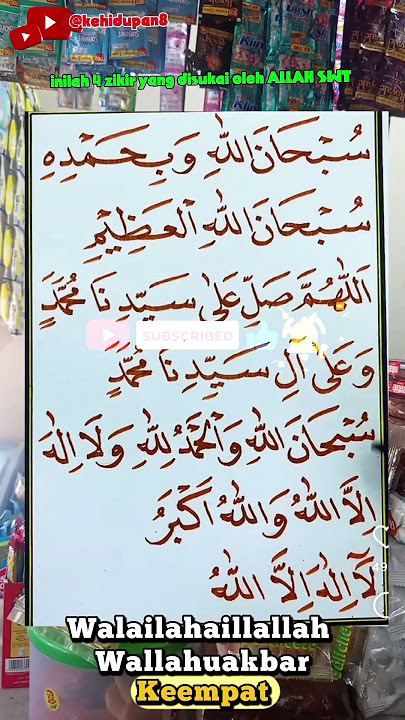 @kehidupan8
inilah 4 zikir yang disukai oleh ALLAH SWT
سُبْحَانَ اللهِ وَبِحَمْدِهِ
سُبْحَانَ اللهِ الْعَظِيْمِ
اَللّٰهُمَّ صَلِّ عَلٰى سَيِّدِنَا مُحَمَّدٍ
SUBSCRIBED
وَعَلٰى آلِ سَيِّدِنَا مُحَمَّدٍ
سُبْحَانَ اللهِ وَالْحَمْدُ لِلّٰهِ وَلَا اِلٰهَ
اِلَّا اللهُ وَاللهُ اَكْبَرُ
لَآ اِلٰهَ اِلَّا اللهُ
Walailahaillallah
Wallahuakbar
Keempat